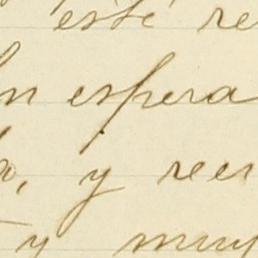 esté re
en espera
, y reci
y muy